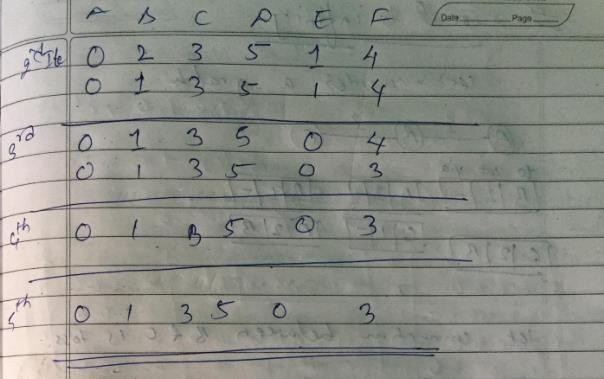 A B C D E F
Date Page
2nd Ite 0 2 3 5 1 4
0 1 3 5 1 4
3rd 0 1 3 5 0 4
0 1 3 5 0 3
4th 0 1 B 5 0 3
5th 0 1 3 5 0 3